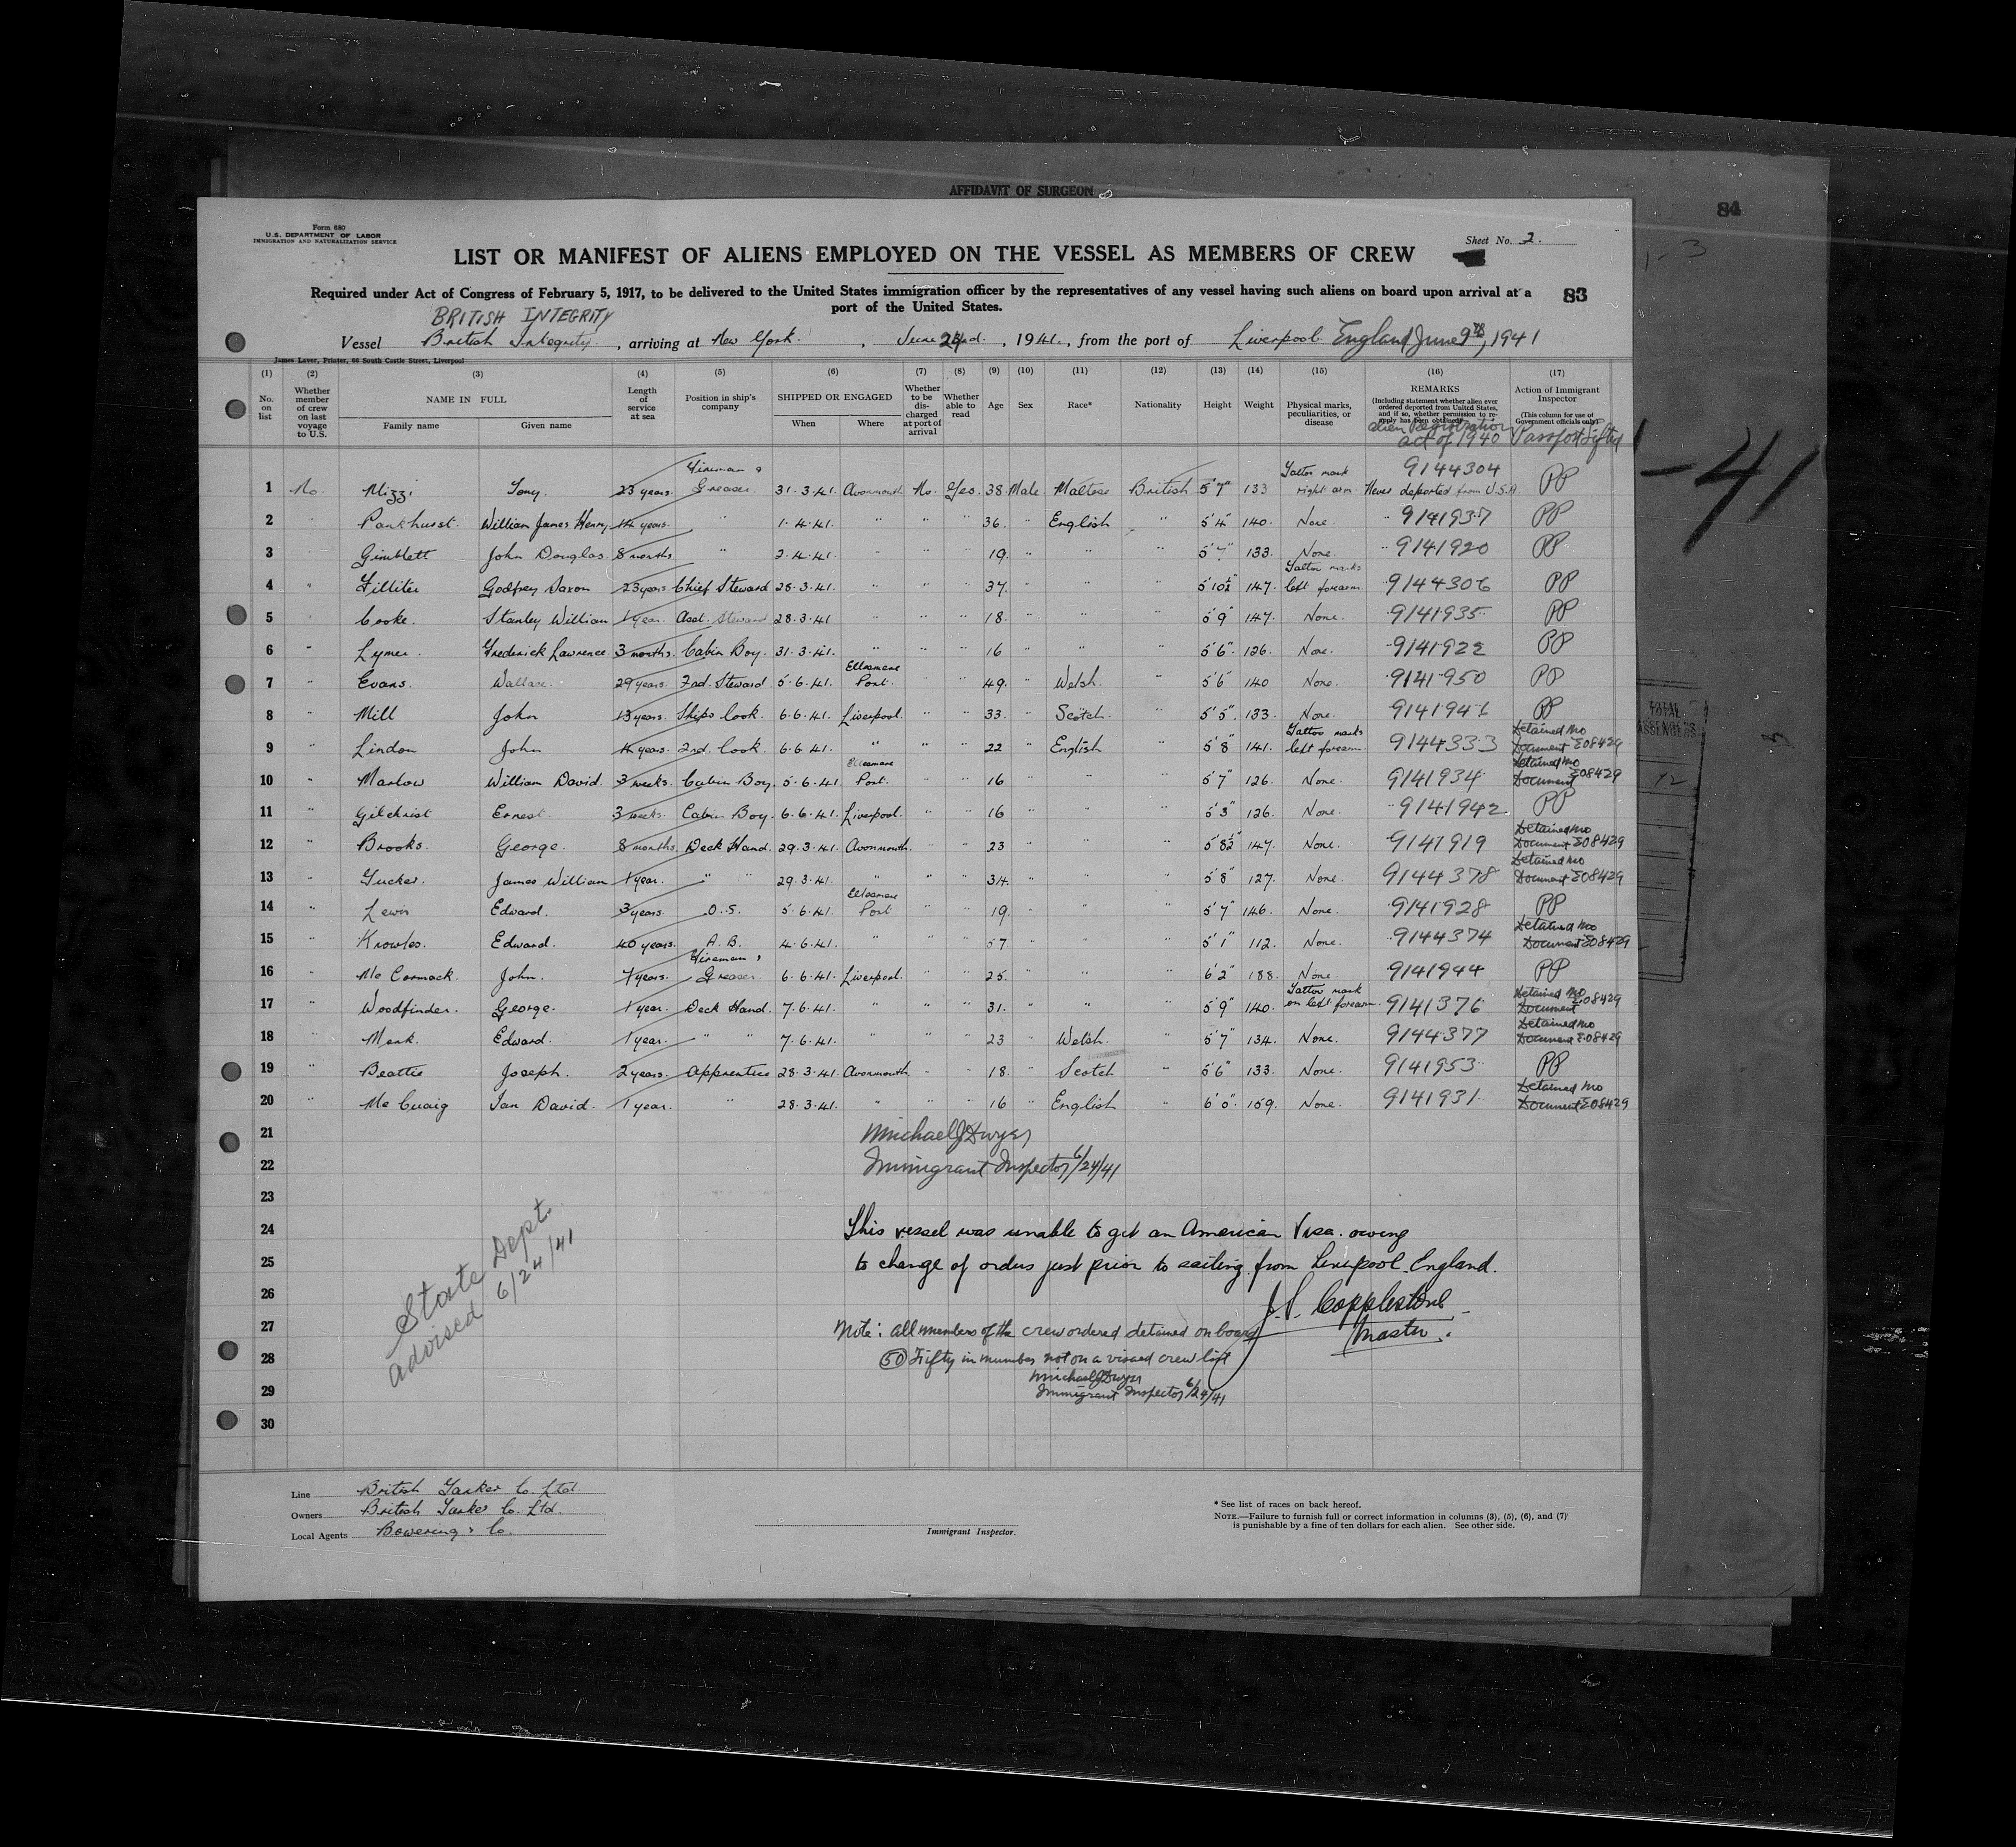 AFFIDAVIT OF SURGEON
84
Form 680
U.S. DEPARTMENT OF LABOR
IMMIGRATION AND NATURALIZATION SERVICE
Sheet No. 2.
LIST OR MANIFEST OF ALIENS EMPLOYED ON THE VESSEL AS MEMBERS OF CREW
Required under Act of Congress of February 5, 1917, to be delivered to the United States immigration officer by the representatives of any vessel having such aliens on board upon arrival at a
port of the United States.
83
BRITISH INTEGRITY
Vessel British Integrity, arriving at New York, June 24, 1941, from the port of Liverpool England June 9th, 1941
James Laver, Printer, 66 South Castle Street, Liverpool
(1) No. on list
(2) Whether member of crew on last voyage to U.S.
(3) NAME IN FULL Family name Given name
(4) Length of service at sea
(5) Position in ship's company
(6) SHIPPED OR ENGAGED When Where
(7) Whether to be discharged at port of arrival
(8) Whether able to read
(9) Age
(10) Sex
(11) Race*
(12) Nationality
(13) Height
(14) Weight
(15) Physical marks, peculiarities, or disease
(16) REMARKS (Including statement whether alien ever ordered deported from United States, and if so, whether permission to reapply has been obtained)
Alien Registration act of 1940
(17) Action of Immigrant Inspector (This column for use of Government officials only)
-41
1 No. Mizzi Tony. 23 years. Fireman & Greaser 31.3.41. Avonmouth No. Yes. 38 Male Maltese British 5'7" 133 Tattoo mark right arm 9144304 Never deported from U.S.A. PP
2 " Pankhurst. William James Henry 14 years. " 1.4.41. " " " 36. " English " 5'4" 140. None. " 9141937 PP
3 " Gimblett John Douglas. 8 months " 2.4.41. " " " 19. " " " 5'7" 133. None. " 9141920 PP
4 " Filliter Godfrey Saxon 23 years Chief Steward 28.3.41. " " " 37. " " " 5'10½" 147. Tattoo marks left forearm 9144306 PP
5 " Cooke. Stanley William 1 year. Asst. Steward 28.3.41 " " " 18. " " " 5'9" 147. None. 9141935 PP
6 " Lymer. Frederick Lawrence. 3 months. Cabin Boy. 31.3.41. " " " 16 " " " 5'6". 126. None. 9141922 PP
7 " Evans. Wallace. 29 years. 2nd. Steward 5.6.41. Ellesmere Port. " " 49. " Welsh. " 5'6" 140 None. 9141950 PP
8 " Mill John 13 years. Ships Cook. 6.6.41. Liverpool. " " 33. " Scotch. " 5'5". 133. None. 9141941 PP
9 " Lindon John 14 years. 2nd. Cook. 6.6.41. " " " 22 " English " 5'8" 141. Tattoo marks left forearm. 9144333 Detained No Document E08429
10 " Marlow William David. 3 weeks. Cabin Boy. 5.6.41. Ellesmere Port. " " 16 " " " 5'7" 126. None. 9141934 Detained No Document E08429
11 " Gilchrist Ernest. 3 weeks. Cabin Boy. 6.6.41. Liverpool. " " 16 " " " 5'3" 126. None. 9141942 PP
12 " Brooks. George. 8 months. Deck Hand. 29.3.41. Avonmouth. " " 23 " " " 5'8½" 147. None. 9141919 Detained No Document E08429
13 " Tucker. James William 1 year. " " 29.3.41. " " " 34. " " " 5'8" 127. None. 9144378 Detained No Document E08429
14 " Lewis Edward. 3 years. O.S. 5.6.41. Ellesmere Port " " 19. " " " 5'7" 146. None. 9141928 PP
15 " Knowles. Edward. 40 years. A.B. 4.6.41. " " " 57 " " " 5'1" 112. None. 9144374 Detained No Document E08429
16 " Mc Cormack. John. 7 years. Fireman & Greaser 6.6.41. Liverpool. " " 25. " " " 6'2" 188. None 9141944 PP
17 " Woodfinder. George. 1 year. Deck Hand. 7.6.41. " " " 31. " " " 5'9" 140. Tattoo mark on left forearm. 9141376 Detained No Document E08429
18 " Monk. Edward. 1 year. " " 7.6.41. " " " 23 " Welsh. " 5'7" 134. None. 9144377 Detained No Document E08429
19 " Beattie Joseph. 2 years. Apprentice 28.3.41. Avonmouth " " 18. " Scotch " 5'6" 133. None. 9141953 PP
20 " Mc Cuaig Ian David. 1 year. " 28.3.41. " " " 16 " English " 6'0". 159. None. 9141931 Detained No Document E08429
21
Michael J Dwyer
22
Immigrant Inspector 6/24/41
23
24
This vessel was unable to get an American Visa. owing
25
to change of orders just prior to sailing from Liverpool, England.
26
J. S. Copplestone
Master.
27
Note: all members of the crew ordered detained on board
28
(50) Fifty in number not on a visaed crew list
Michael J Dwyer
29
Immigrant Inspector 6/24/41
30
State Dept.
advised 6/24/41
Line British Tanker Co. Ltd.
Owners British Tanker Co. Ltd.
Local Agents Bowering & Co.
Immigrant Inspector.
* See list of races on back hereof.
NOTE.—Failure to furnish full or correct information in columns (3), (5), (6), and (7)
is punishable by a fine of ten dollars for each alien. See other side.